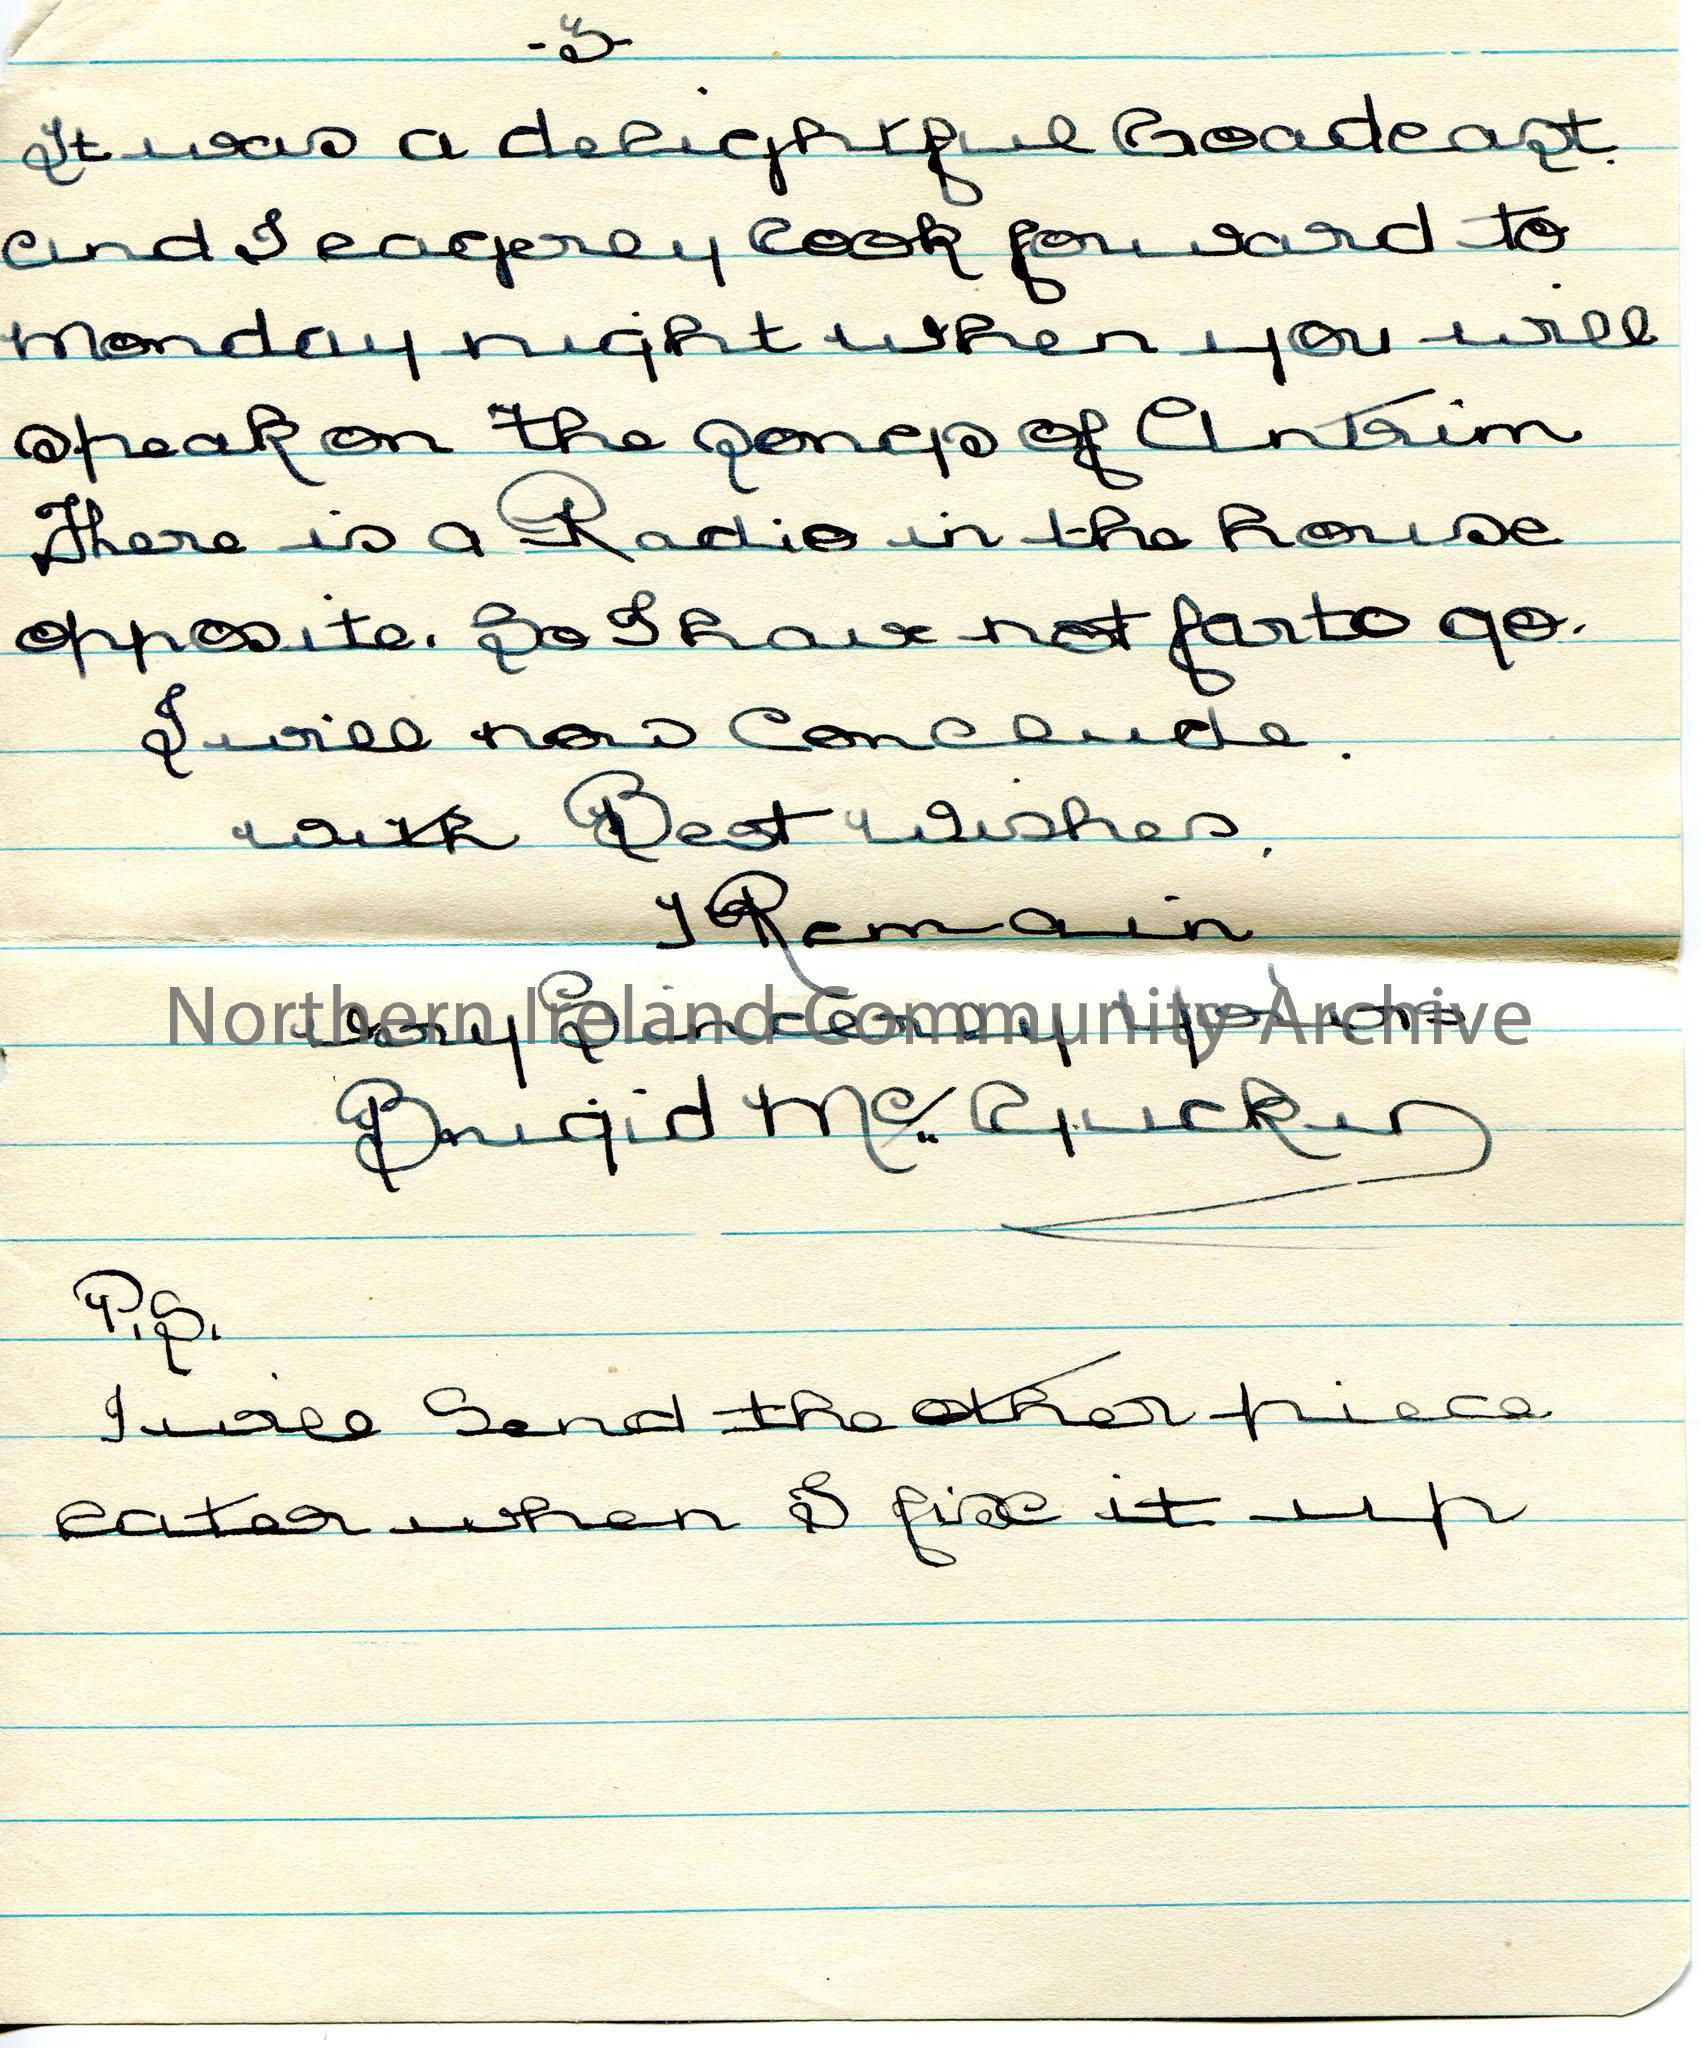 -3-
It was a delightful Broadcast.
and I eagerly look forward to
Monday night when you will
speak on the songs of Antrim
There is a Radio in the house
opposite. So I have not far to go.
I will now Conclude.
with Best wishes,
I Remain
very Sincerely yours
Brigid Mc. Guckin
P.S.
I will Send the other piece
later when I fix it up
Northern Ireland Community Archive